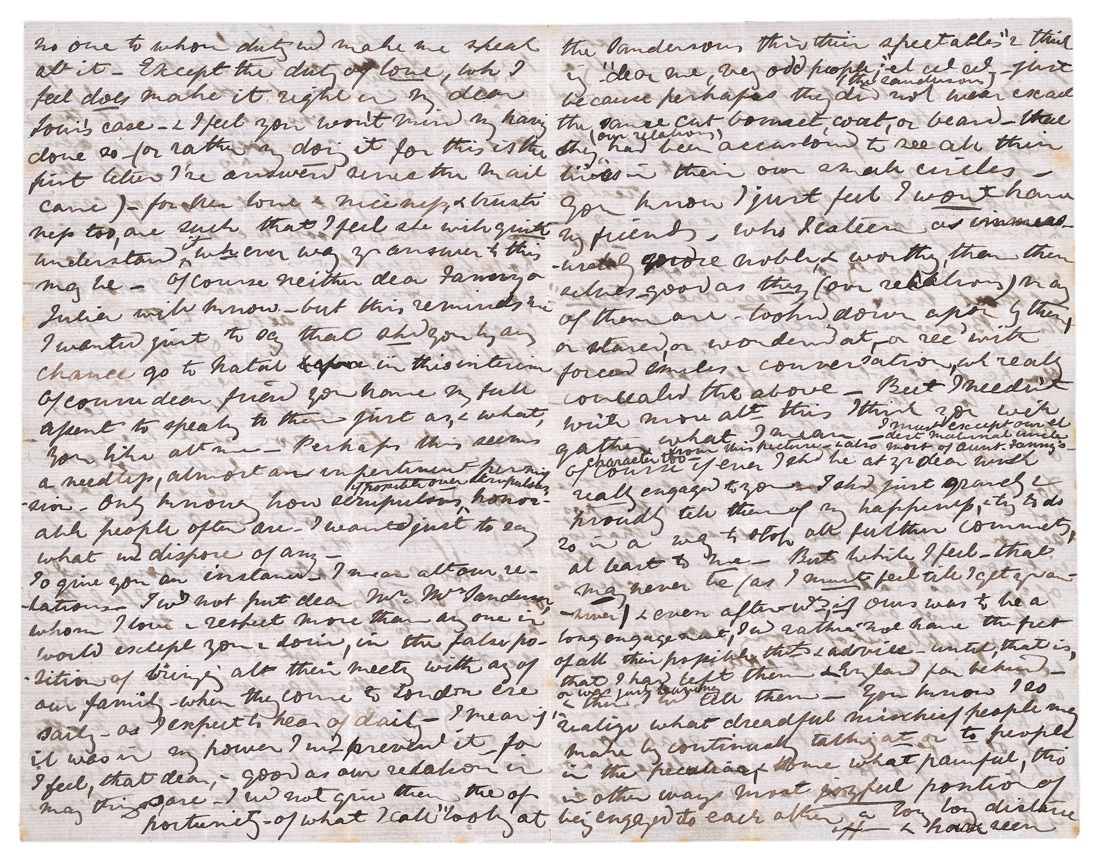 no one to whom duty wd make me speak
abt it – Except the duty of love, wh I
feel does make it right in my dear
Louis's case – & I feel you won't mind my having
done so – (or rather my doing it for this is the
first letter I've answered since the Mail
came) – for her love & niceness & trusti
ness too, are such that I feel she will quite
understand, whichever way yr answer to this
may be – Of course neither dear Fanny or
Julia will know – but this reminds me
I wanted just to say that shd you by any
chance go to Natal before in this interim
of course dear friend you have my full
assent to speak to them just as, & what,
you like abt me – Perhaps this seems
a needless, almost an impertinent permis
if possible over scrupulous
-sion – Only knowing how scrupulous, honor-
able people often are – I wanted just to say
what we dispose of any –
To give you an instance – I mean abt our re-
-lations – I wd not put dear Mr & Mrs Sanderson,
whom I love & respect more than any one in
world except you & doin, in the false po-
-sition of being abt their meeting with any of
our family – when they come to London ere
– as I expect to hear of daily – I mean if
it was in my power I wd prevent it, for
I feel, that dear, & good as our relations in
may things are – I wd not give them the op
portunity – of what I call "looking at
the Sandersons thro' their spectacles" & think
ing "dear me, very odd people," et cet cet – just
(the Sandersons)
because perhaps they did not wear exact
the same cut bonnet, coat, or beard – that
(our relations)
they had been accustomed to see all their
lives in their own small circles –
You know I just feel I won't have
my friends, who I esteem as immeas-
-urably more noble & worthy, than them
selves – good as they (our relations) may
of them are – looked down upon by them,
or stared, or wondered at, or recd with
forced smiles & conversation, wh really
concealed the above – But I needn't
write more abt this I think you will
gather what I mean – I must except our el
-dest maternal uncle
from this picture & also most of Aunt Fanny's
character too –
Of course if ever I shd be at yr dear wish
really engaged to you – I shd just gravely &
proudly tell them of my happiness, & try to do
so in a way to stop all further comments,
at least to me – But while I feel – that
may never be (as I must feel till I get yr an-
-swer) & even afterwds if ours was to be a
long engagement, I'd rather not have the fret
of all their possible thts & advice – until, that is,
that I had left them & England far behind –
or was just leaving
& then I'd tell them – You know I so
realize what dreadful mischief people may
make by continually talking at or to people
in the peculiar, & somewhat painful, tho
in other ways most joyful position of
being engaged to each other, a long long distance
off – & have seen